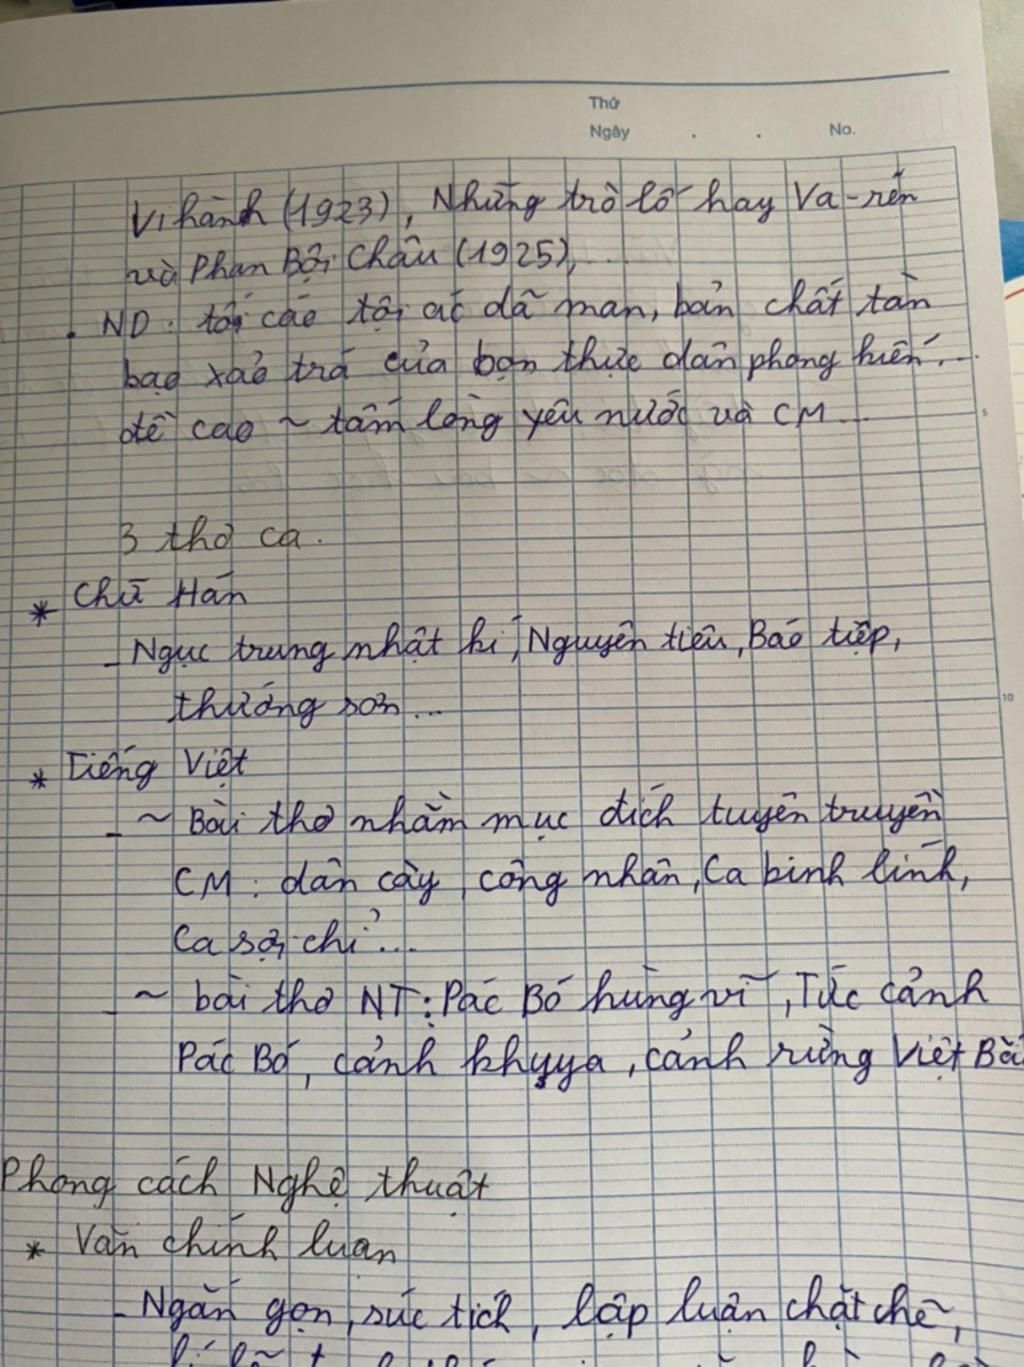 Thứ
Ngày . . No.
Vi hành (1923), Những trò lố hay Va-ren
và Phan Bội Châu (1925),...
. ND: tối cáo tội ác dã man, bản chất tàn
bạo xảo trá của bọn thực dân phong kiến...
đề cao ~ tấm lòng yêu nước và CM...
5
3 thơ ca.
* Chữ Hán
- Ngục trung nhật kí, Nguyên tiêu, Báo tiệp,
thướng sơn...
10
* Tiếng Việt
- ~ Bài thơ nhằm mục đích tuyên truyền
CM: dân cày, công nhân, Ca binh lính,
Ca sợi chỉ...
- ~ bài thơ NT: Pác Bó hùng vĩ, Tức cảnh
Pác Bó, cảnh khyya, cảnh rừng Việt Bắc
Phong cách Nghệ thuật
* Văn chính luận
- Ngắn gọn, súc tích, lập luận chặt chẽ,